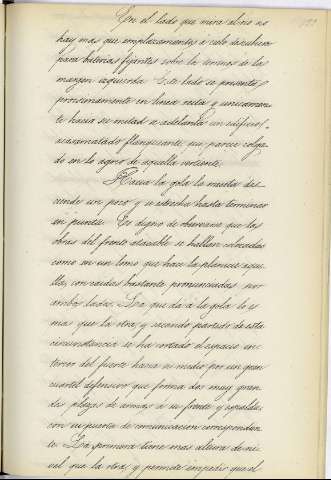 En el lado que mira al rio no
hay mas que emplazamientos á cielo descubierto
para baterias fijantes sobre la lomas de la
margen izquierda. Este lado se presenta
proximamente en linea recta y unicamen-
te hacia su mitad se adelanta un edificio
acasamatado flanqueante, un parece colga-
do en lo agrio de aquella vertiente.
Hacia la gola la meseta des-
ciende un poco y se estrecha hasta terminar
en punta. Es digno de observarse que las
obras del frente atacable se hallan colocadas
como en un lomo que hace la planicie aque-
lla, con caidas bastante pronunciadas por
ambos lados. La que da á la gola lo es
mas que la otra, y sacando partido de esta
circunstancia se ha cortado el espacio in-
terior del fuerte hacia su medio por un gran
cuartel defensivo que forma dos muy gran-
des plazas de armas á su frente y espalda,
con su puerta de comunicacion correspondien-
te. La primera tiene mas altura de ni-
vel que la otra, y permite impedir que el